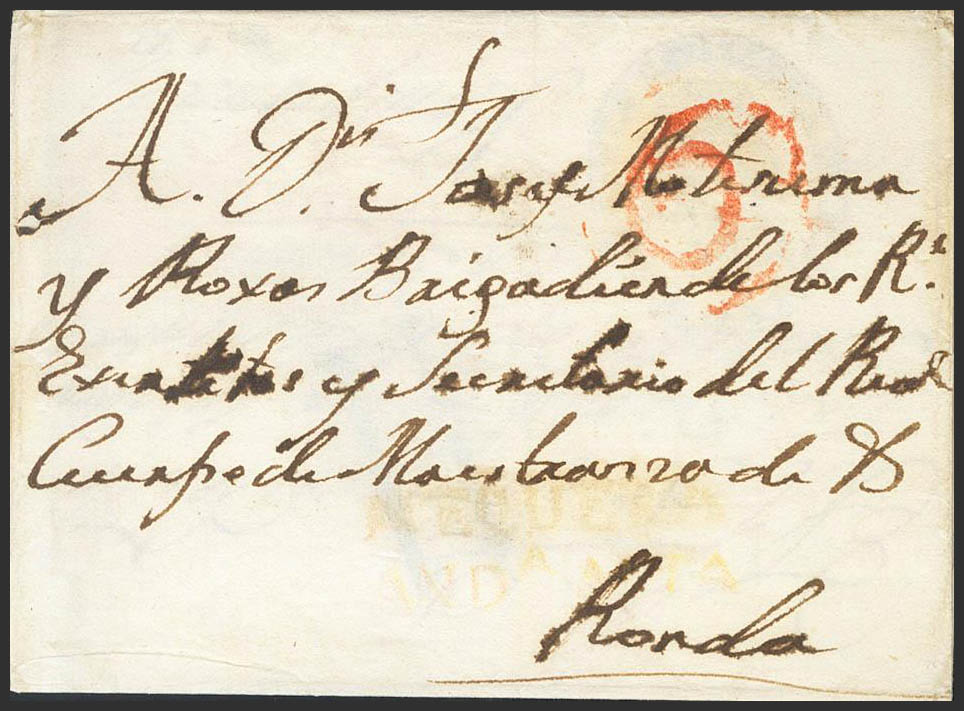 A. Dn Josef Motezuma
y Roxas Brigadier de los Rs
Exercitos y Secretario del Real
Cuerpo de Maestranza de
Ronda
6
ATEQUERA
ANDA ALTA